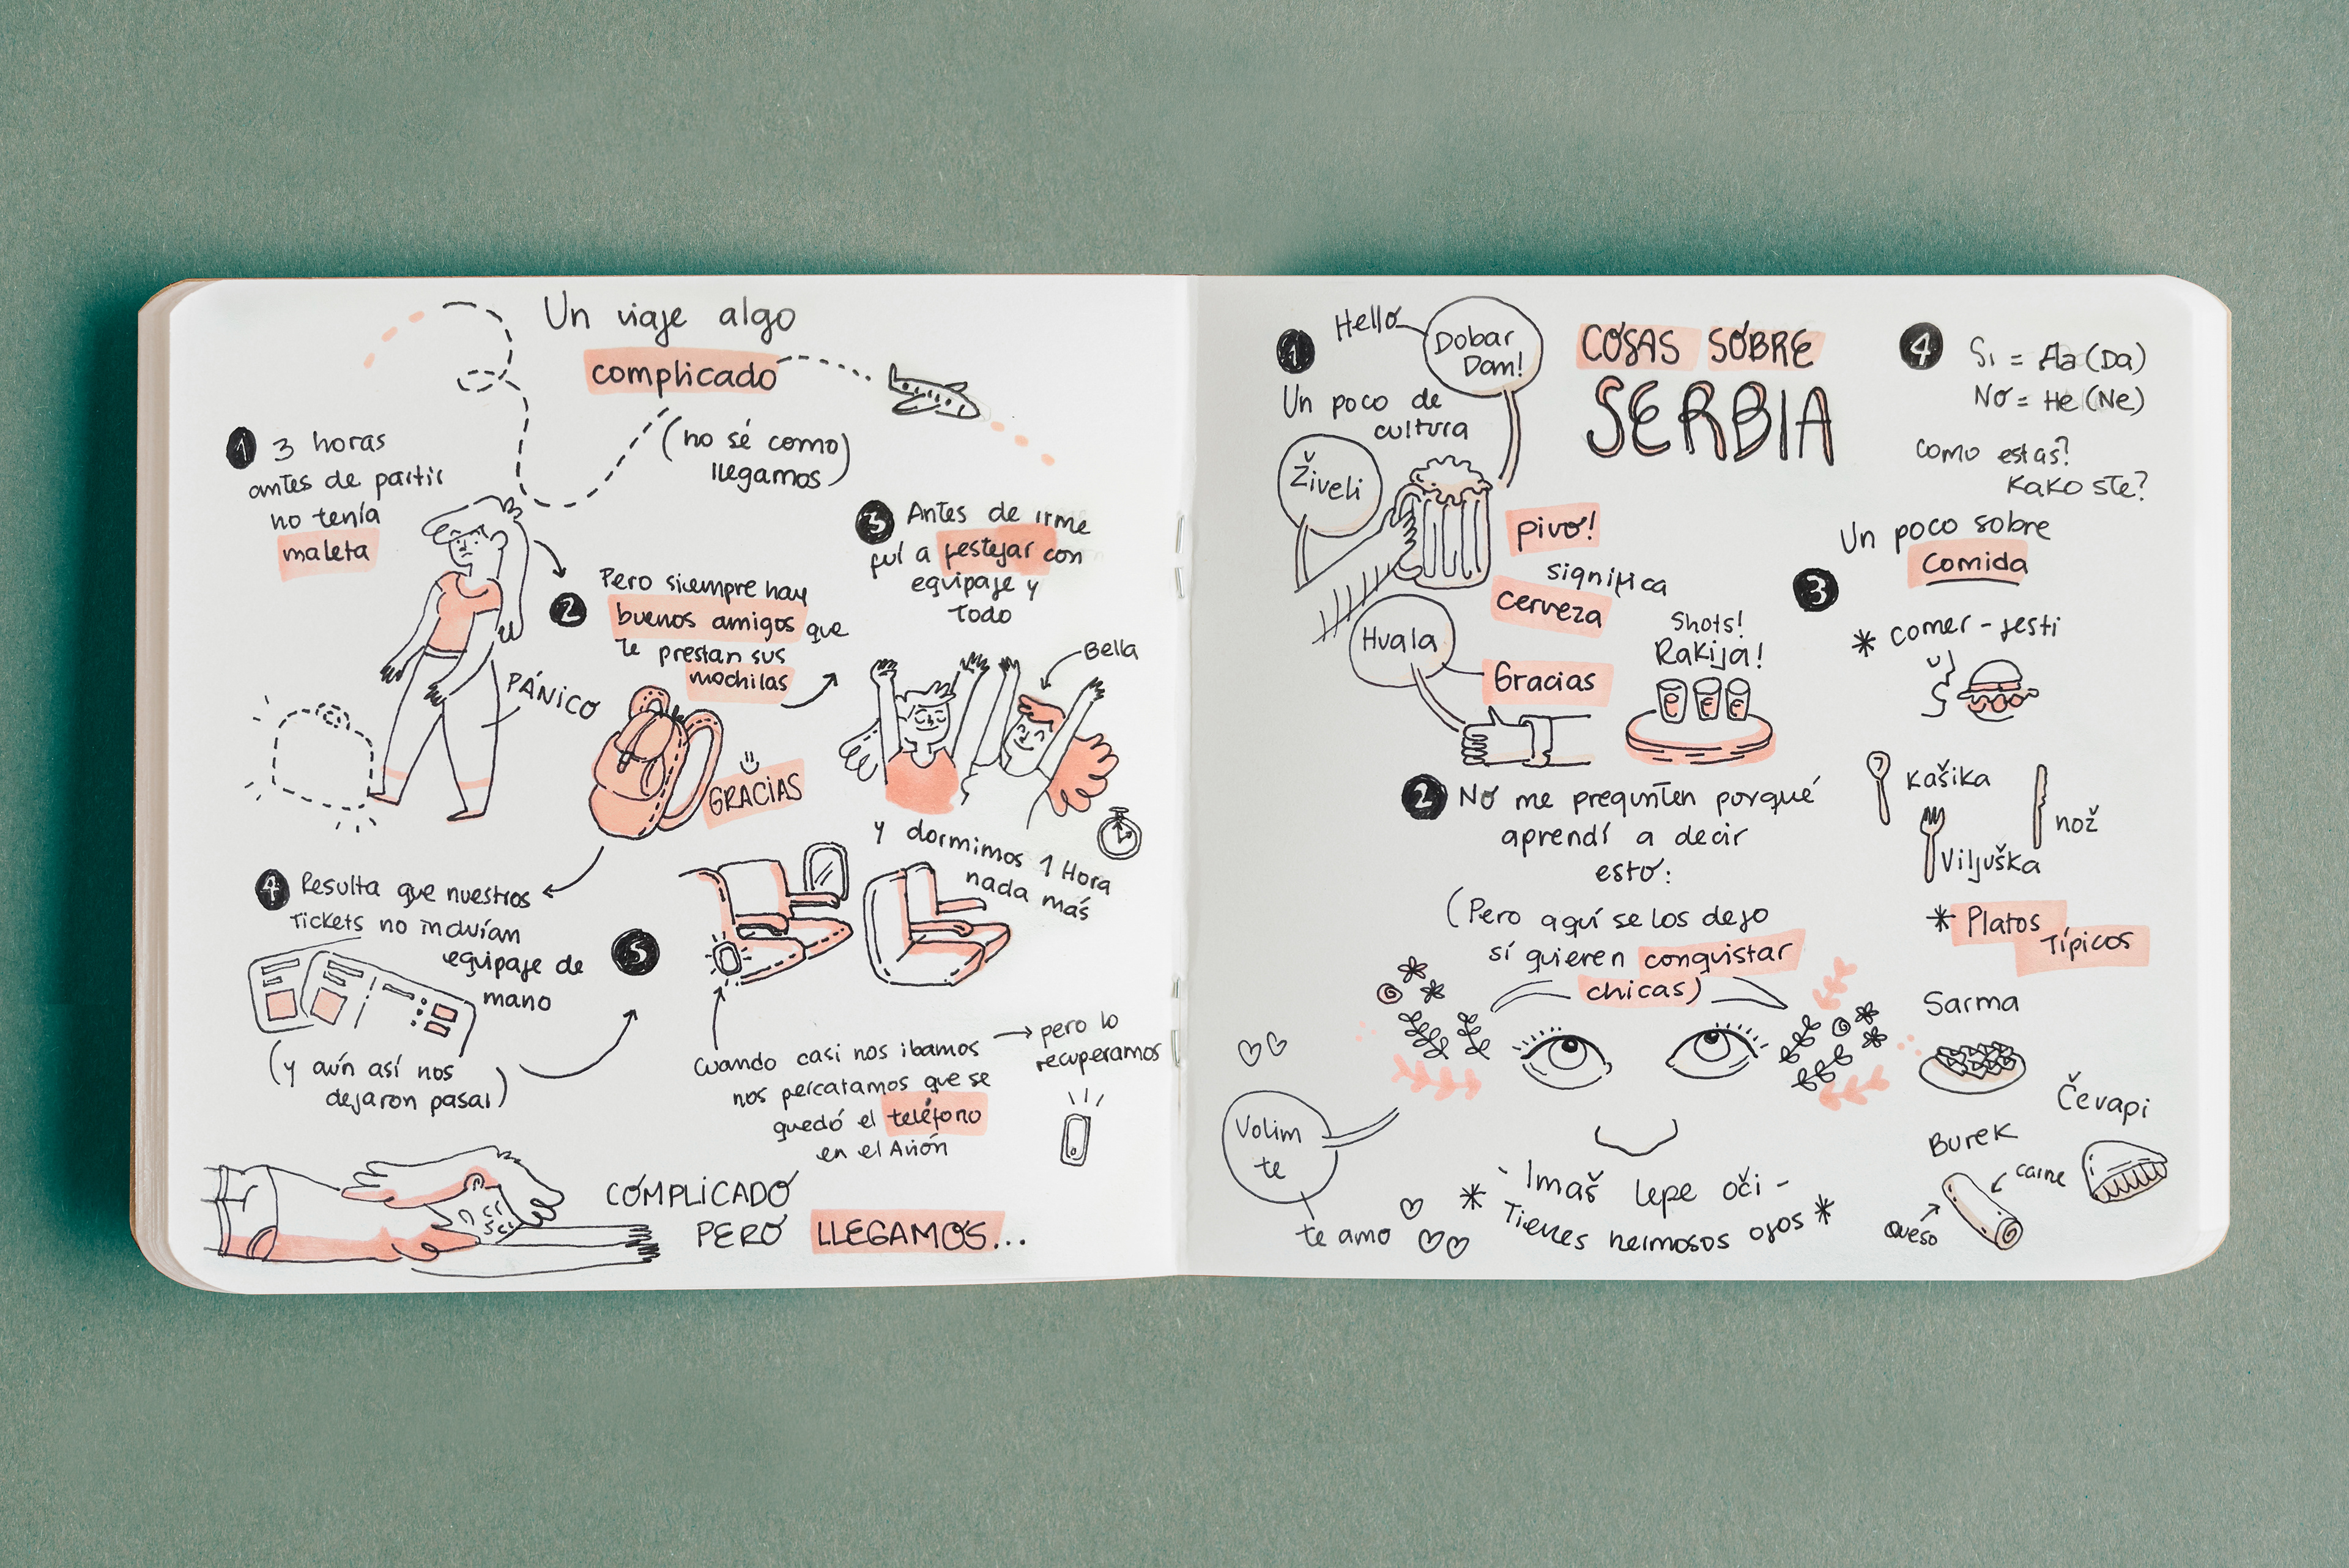 Un viaje algo
complicado
(no sé como
llegamos)
1 3 horas
antes de partir
no tenía
maleta
PÁNICO
2 Pero siempre hay
buenos amigos que
te prestan sus
mochilas
GRACIAS
3 Antes de irme
fuí a festejar con
equipaje y
todo
Bella
y dormimos 1 Hora
nada más
4 Resulta que nuestros
Tickets no incluían
equipaje de
mano
(y aún así nos
dejaron pasar)
5
Cuando casi nos ibamos
nos percatamos que se
quedó el teléfono
en el Avión
pero lo
recuperamos
COMPLICADO
PERO LLEGAMOS...
COSAS SOBRE
SERBIA
1 Hello
Dobar
Dam!
Un poco de
cultura
Živeli
pivo!
significa
cerveza
Hvala
Gracias
Shots!
Rakija!
2 No me pregunten porqué
aprendí a decir
esto:
(Pero aquí se los dejo
sí quieren conquistar
chicas)
Volim
te
te amo
- Imaš lepe oči -
* Tienes hermosos ojos *
4 Si = Да (Da)
No = He (Ne)
como estas?
Kako ste?
3 Un poco sobre
comida
* comer - jesti
Kašika
nož
Viljuška
* Platos
Típicos
Sarma
Čevapi
Burek
carne
queso